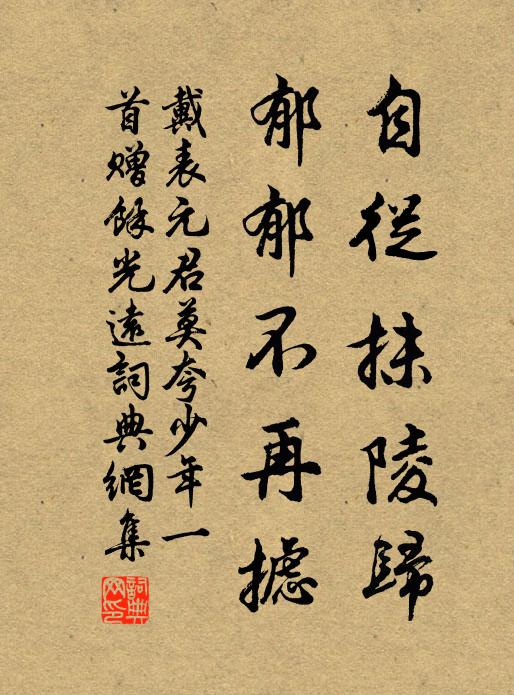 自從抹陵歸
郁郁不再攄
戴表元君莫夸少年一
首贈餘光遠詞典網集
詞典網印